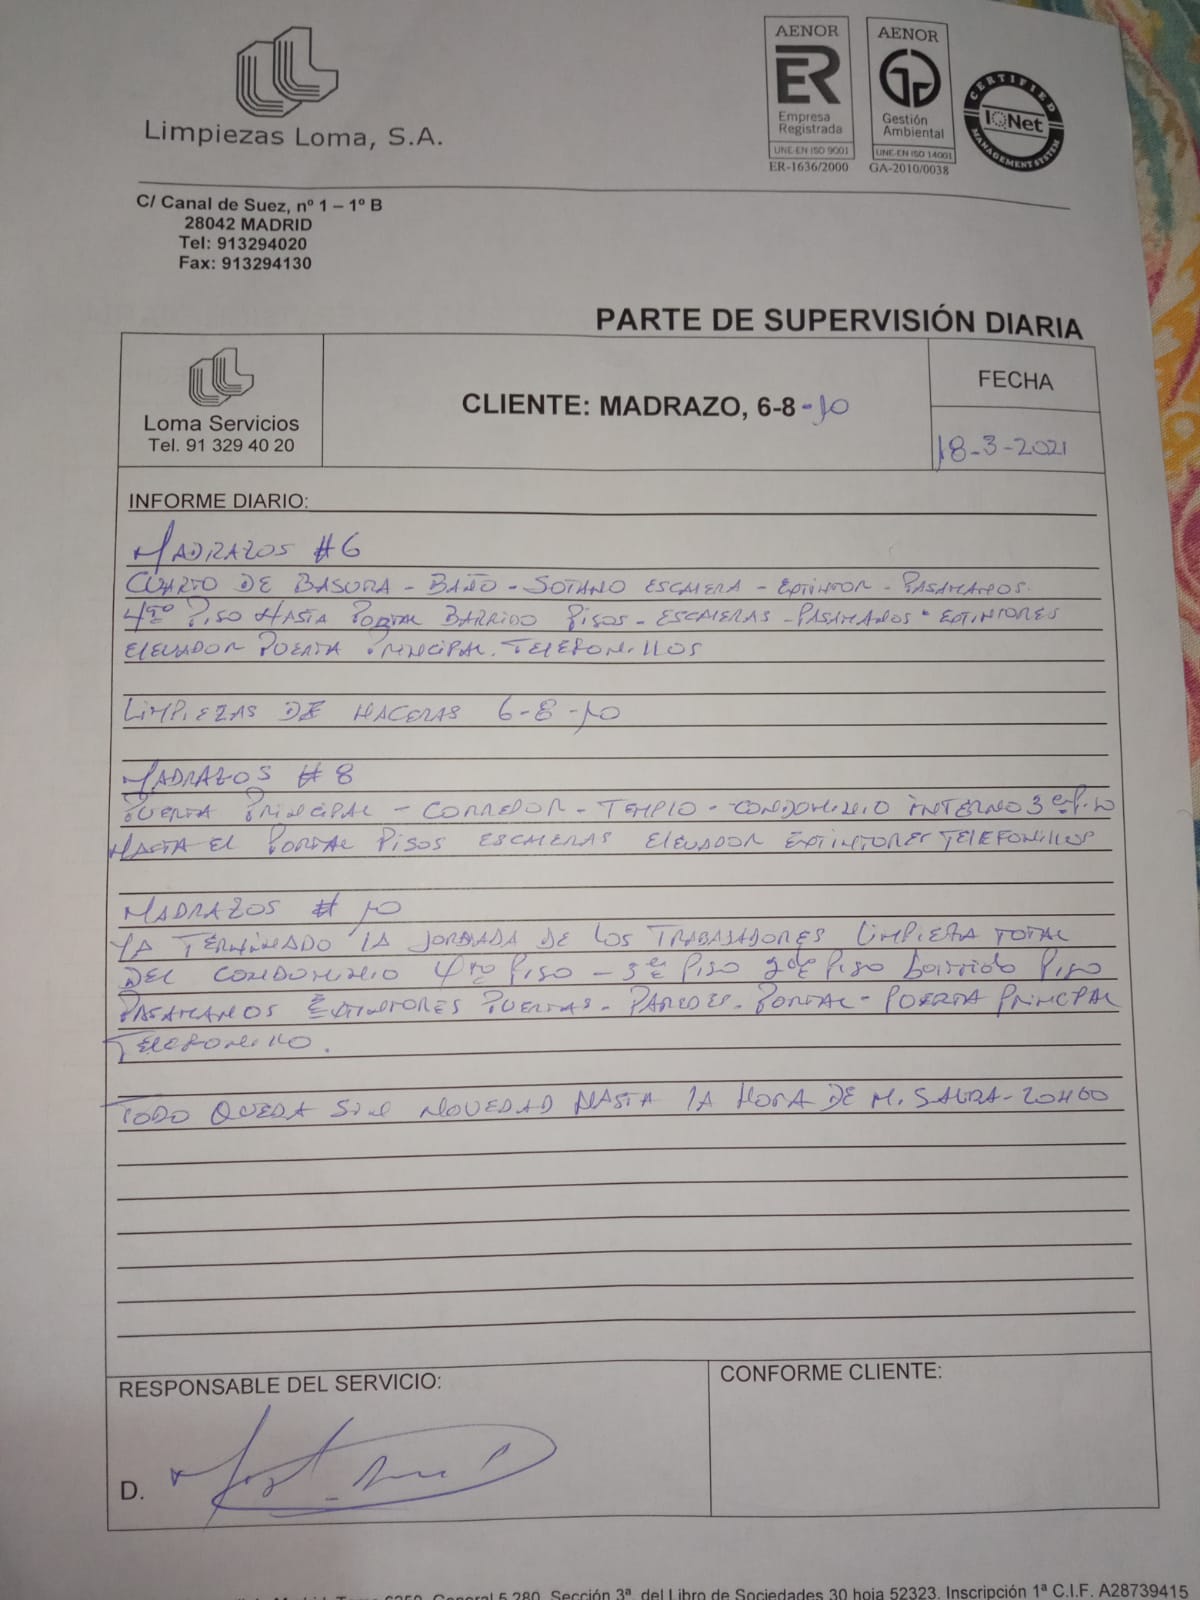 Limpiezas Loma, S.A.
AENOR
ER
Empresa
Registrada
UNE-EN ISO 9001
ER-1636/2000
AENOR
Gestión
Ambiental
UNE-EN ISO 14001
GA-2010/0038
CERTIFIED
IQNet
MANAGEMENT SYSTEM
C/ Canal de Suez, nº 1 – 1º B
28042 MADRID
Tel: 913294020
Fax: 913294130
PARTE DE SUPERVISIÓN DIARIA
Loma Servicios
Tel. 91 329 40 20
CLIENTE: MADRAZO, 6-8-10
FECHA
18-3-2021
INFORME DIARIO:
MADRAZOS #6
CUARTO DE BASURA - BAÑO - SOTANO ESCALERA - EXTINTOR - PASAMANOS.
4TO PISO HASTA PORTAL BARRIDO PISOS - ESCALERAS - PASAMANOS - EXTINTORES
ELEVADOR PUERTA PRINCIPAL. TELEFONILLOS
LIMPIEZAS DE HACERAS 6-8-10
MADRAZOS #8
PUERTA PRINCIPAL - CORREDOR - TEMPLO - CONDOMINIO INTERNO 3er
HASTA EL PORTAL PISOS ESCALERAS ELEVADOR EXTINTORES TELEFONILLOS
MADRAZOS # 10
YA TERMINADO LA JORNADA DE LOS TRABAJADORES LIMPIEZA TOTAL
DEL CONDOMINIO 4TO PISO - 3er PISO 2do PISO barrido PISO
PASAMANOS EXTINTORES PUERTAS - PAREDES - PORTAL - PUERTA PRINCIPAL
TELEFONILLO.
TODO QUEDA SIN NOVEDAD HASTA LA HORA DE M. SALIDA - 20H00
RESPONSABLE DEL SERVICIO:
CONFORME CLIENTE:
D.
General 5.280, Sección 3ª, del Libro de Sociedades 30 hoja 52323, Inscripción 1ª C.I.F. A28739415